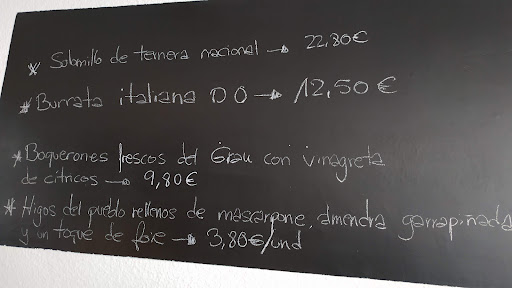 * Solomillo de ternera nacional → 22,80€
* Burrata italiana DO → 12,50€
* Boquerones frescos del Grau con vinagreta
de cítricos → 9,80€
* Higos del pueblo rellenos de mascarpone, almendra garrapiñada
y un toque de foie → 3,80€/und